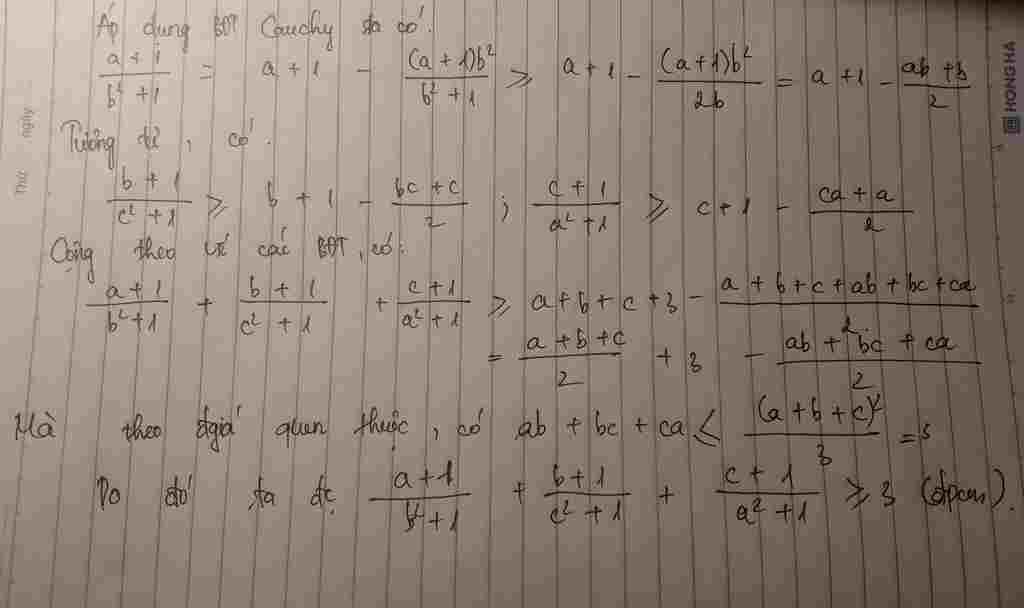 Áp dụng BĐT Cauchy ta có:
(a + 1)/(b² + 1) = a + 1 - ((a + 1)b²)/(b² + 1) ≥ a + 1 - ((a + 1)b²)/(2b) = a + 1 - (ab + b)/2
Tương tự, có:
(b + 1)/(c² + 1) ≥ b + 1 - (bc + c)/2 ; (c + 1)/(a² + 1) ≥ c + 1 - (ca + a)/2
Cộng theo vế các BĐT, có:
(a + 1)/(b² + 1) + (b + 1)/(c² + 1) + (c + 1)/(a² + 1) ≥ a + b + c + 3 - (a + b + c + ab + bc + ca)/2
= (a + b + c)/2 + 3 - (ab + bc + ca)/2
Mà theo đgiá quen thuộc, có ab + bc + ca ≤ (a + b + c)²/3 = 3
Do đó ta đc (a + 1)/(b² + 1) + (b + 1)/(c² + 1) + (c + 1)/(a² + 1) ≥ 3 (đpcm).
Thứ ngày
HONG HA